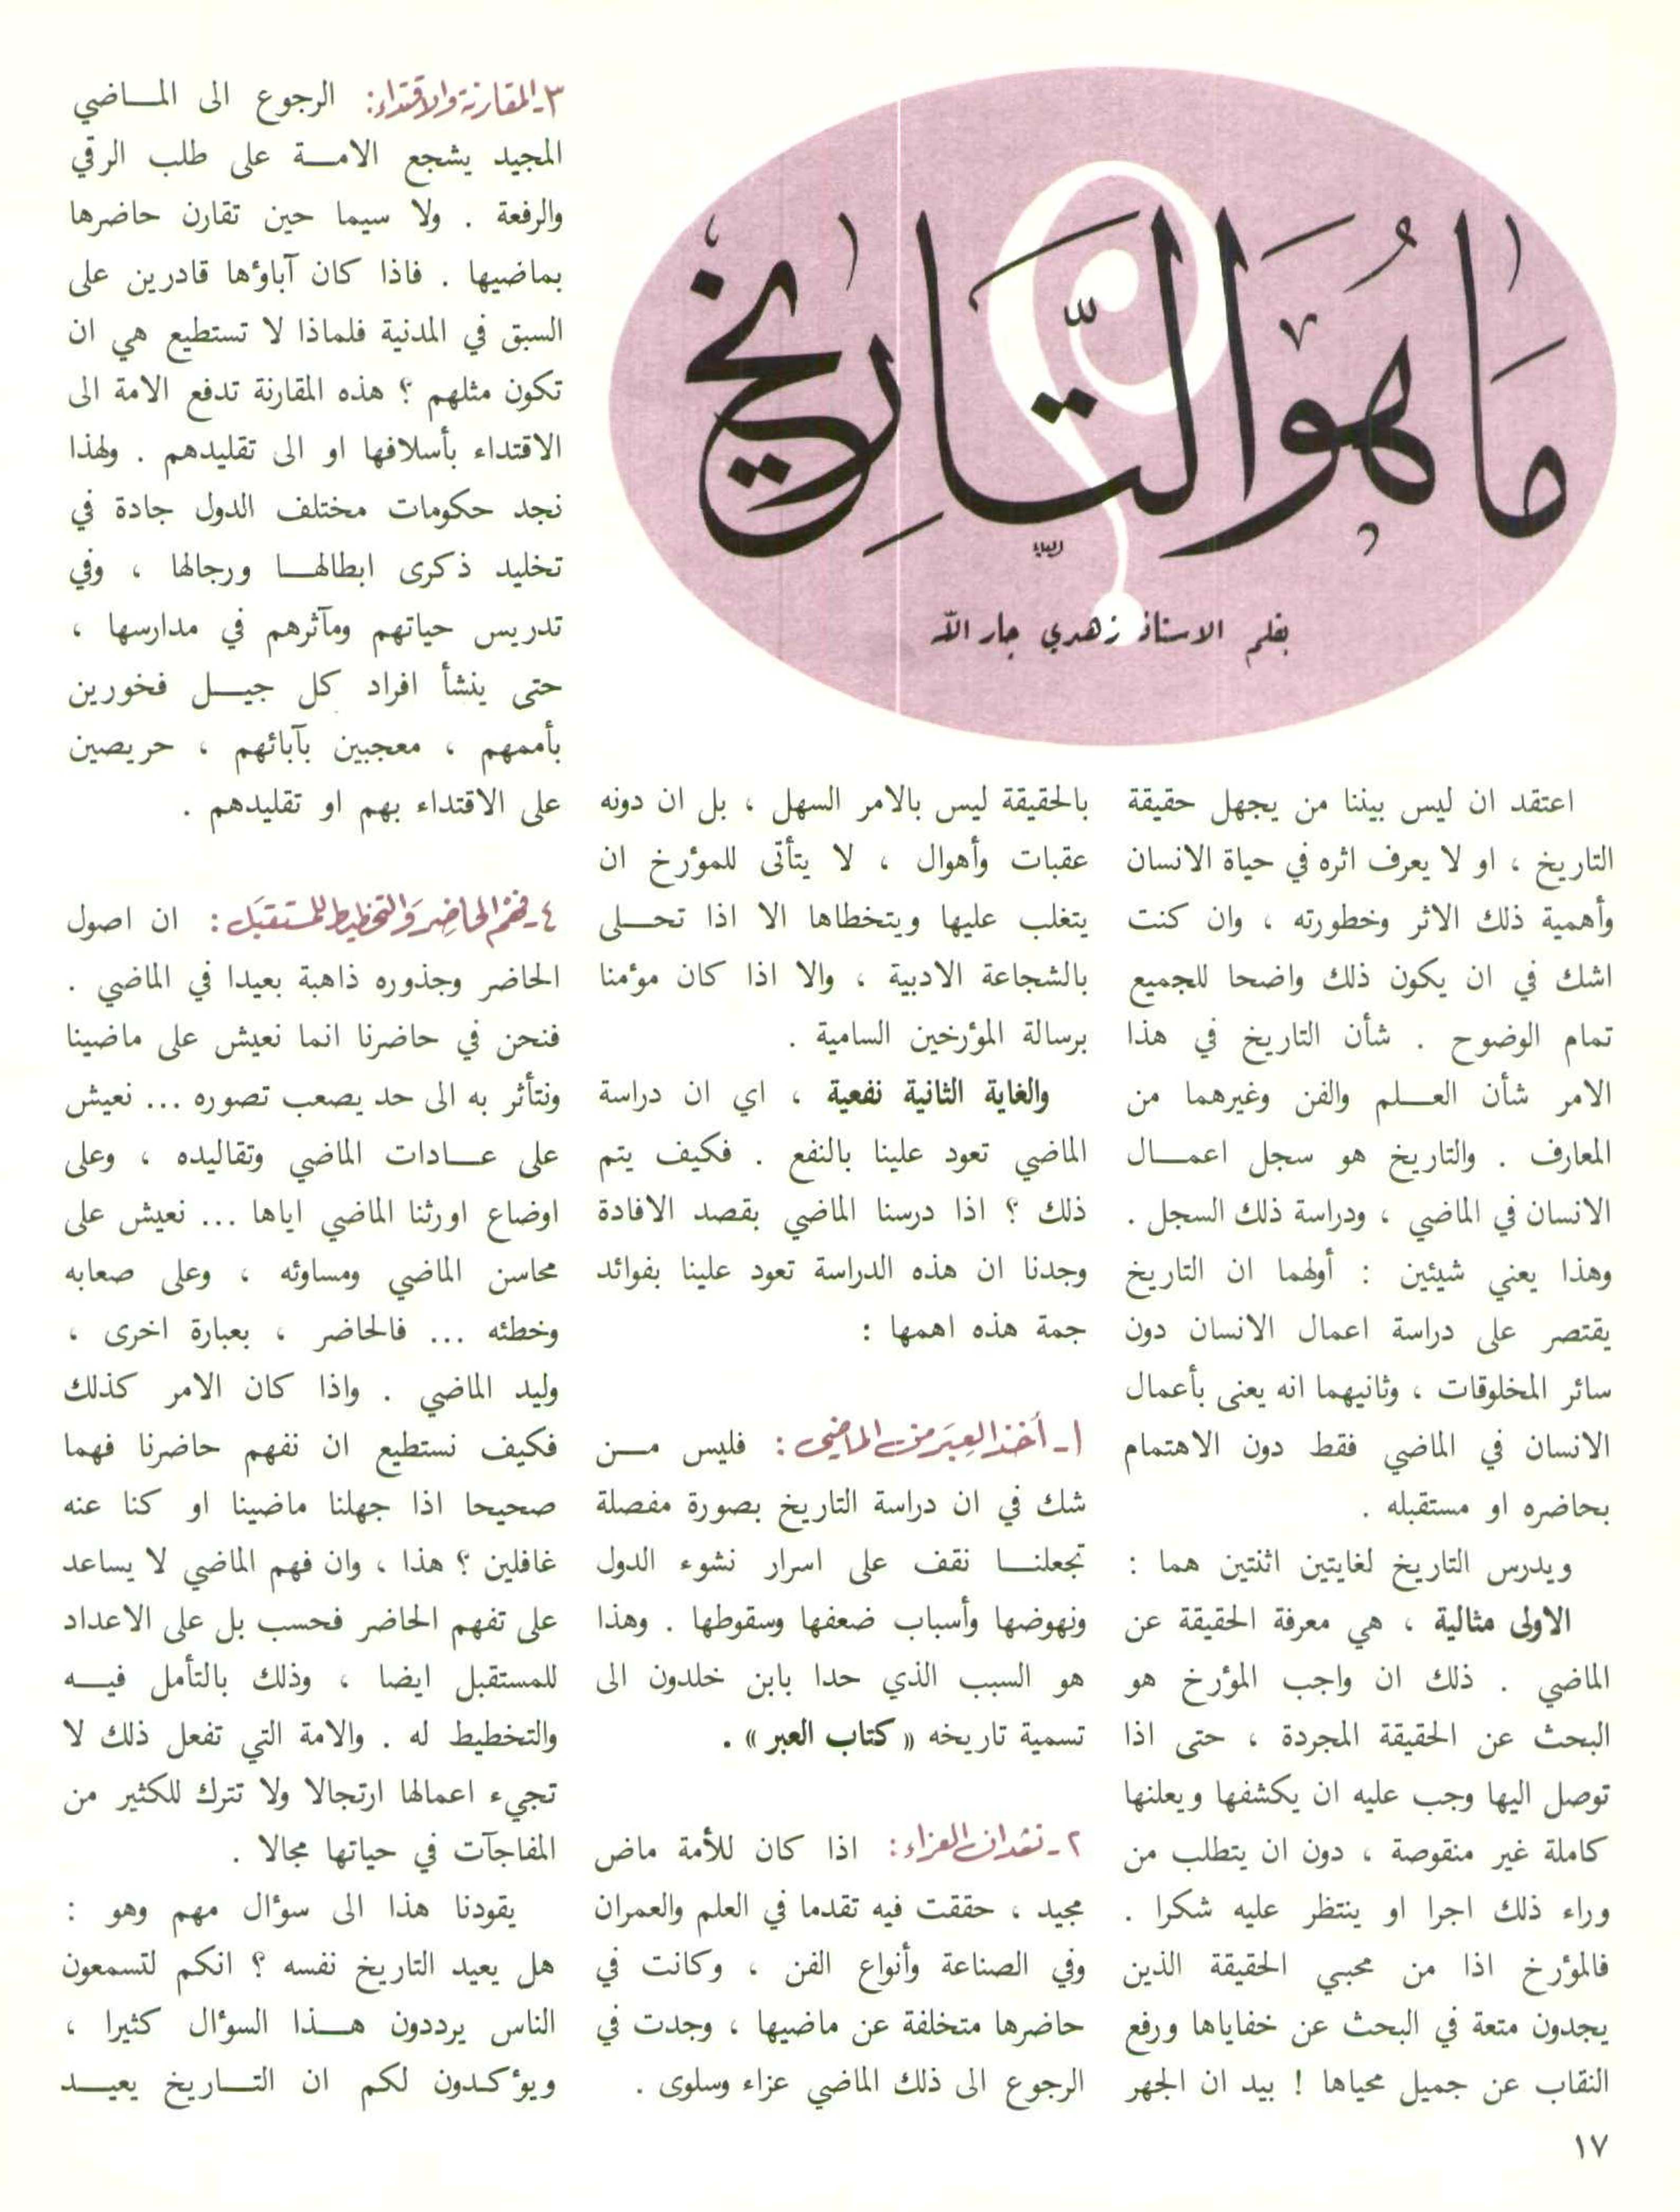 ما هو التاريخ
بقلم الاستاذ زهدي جار الله
اعتقد ان ليس بيننا من يجهل حقيقة
التاريخ ، او لا يعرف اثره في حياة الانسان
وأهمية ذلك الاثر وخطورته ، وان كنت
اشك في ان يكون ذلك واضحا للجميع
تمام الوضوح . شأن التاريخ في هذا
الامر شأن العلم والفن وغيرهما من
المعارف . والتاريخ هو سجل اعمال
الانسان في الماضي ، ودراسة ذلك السجل .
وهذا يعني شيئين : أولهما ان التاريخ
يقتصر على دراسة اعمال الانسان دون
سائر المخلوقات ، وثانيهما انه يعنى بأعمال
الانسان في الماضي فقط دون الاهتمام
بحاضره او مستقبله .
ويدرس التاريخ لغايتين اثنتين هما :
الاولى مثالية ، هي معرفة الحقيقة عن
الماضي . ذلك ان واجب المؤرخ هو
البحث عن الحقيقة المجردة ، حتى اذا
توصل اليها وجب عليه ان يكشفها ويعلنها
كاملة غير منقوصة ، دون ان يتطلب من
وراء ذلك اجرا او ينتظر عليه شكرا .
فالمؤرخ اذا من محبي الحقيقة الذين
يجدون متعة في البحث عن خفاياها ورفع
النقاب عن جميل محياها ! بيد ان الجهر
بالحقيقة ليس بالامر السهل ، بل ان دونه
عقبات وأهوال ، لا يتأتى للمؤرخ ان
يتغلب عليها ويتخطاها الا اذا تحلى
بالشجاعة الادبية ، والا اذا كان مؤمنا
برسالة المؤرخين السامية .
والغاية الثانية نفعية ، اي ان دراسة
الماضي تعود علينا بالنفع . فكيف يتم
ذلك ؟ اذا درسنا الماضي بقصد الافادة
وجدنا ان هذه الدراسة تعود علينا بفوائد
جمة هذه اهمها :
١- أخذ العِبَر من الماضي : فليس من
شك في ان دراسة التاريخ بصورة مفصلة
تجعلنا نقف على اسرار نشوء الدول
ونهوضها وأسباب ضعفها وسقوطها . وهذا
هو السبب الذي حدا بابن خلدون الى
تسمية تاريخه « كتاب العبر » .
٢- نشدان العزاء : اذا كان للأمة ماض
مجيد ، حققت فيه تقدما في العلم والعمران
وفي الصناعة وأنواع الفن ، وكانت في
حاضرها متخلفة عن ماضيها ، وجدت في
الرجوع الى ذلك الماضي عزاء وسلوى .
٣- المقارنة والاقتداء : الرجوع الى الماضي
المجيد يشجع الامة على طلب الرقي
والرفعة . ولا سيما حين تقارن حاضرها
بماضيها . فاذا كان آباؤها قادرين على
السبق في المدنية فلماذا لا تستطيع هي ان
تكون مثلهم ؟ هذه المقارنة تدفع الامة الى
الاقتداء بأسلافها او الى تقليدهم . ولهذا
نجد حكومات مختلف الدول جادة في
تخليد ذكرى ابطالها ورجالها ، وفي
تدريس حياتهم ومآثرهم في مدارسها ،
حتى ينشأ افراد كل جيل فخورين
بأممهم ، معجبين بآبائهم ، حريصين
على الاقتداء بهم او تقليدهم .
٤- فهم الحاضِر وَالتخطيط للمستقبَل : ان اصول
الحاضر وجذوره ذاهبة بعيدا في الماضي .
فنحن في حاضرنا انما نعيش على ماضينا
ونتأثر به الى حد يصعب تصوره ... نعيش
على عادات الماضي وتقاليده ، وعلى
اوضاع اورثنا الماضي اياها ... نعيش على
محاسن الماضي ومساوئه ، وعلى صعابه
وخطئه ... فالحاضر ، بعبارة اخرى ،
وليد الماضي . واذا كان الامر كذلك
فكيف نستطيع ان نفهم حاضرنا فهما
صحيحا اذا جهلنا ماضينا او كنا عنه
غافلين ؟ هذا ، وان فهم الماضي لا يساعد
على تفهم الحاضر فحسب بل على الاعداد
للمستقبل ايضا ، وذلك بالتأمل فيه
والتخطيط له . والامة التي تفعل ذلك لا
تجيء اعمالها ارتجالا ولا تترك للكثير من
المفاجآت في حياتها مجالا .
يقودنا هذا الى سؤال مهم وهو :
هل يعيد التاريخ نفسه ؟ انكم لتسمعون
الناس يرددون هذا السؤال كثيرا ،
ويؤكدون لكم ان التاريخ يعيد
١٧